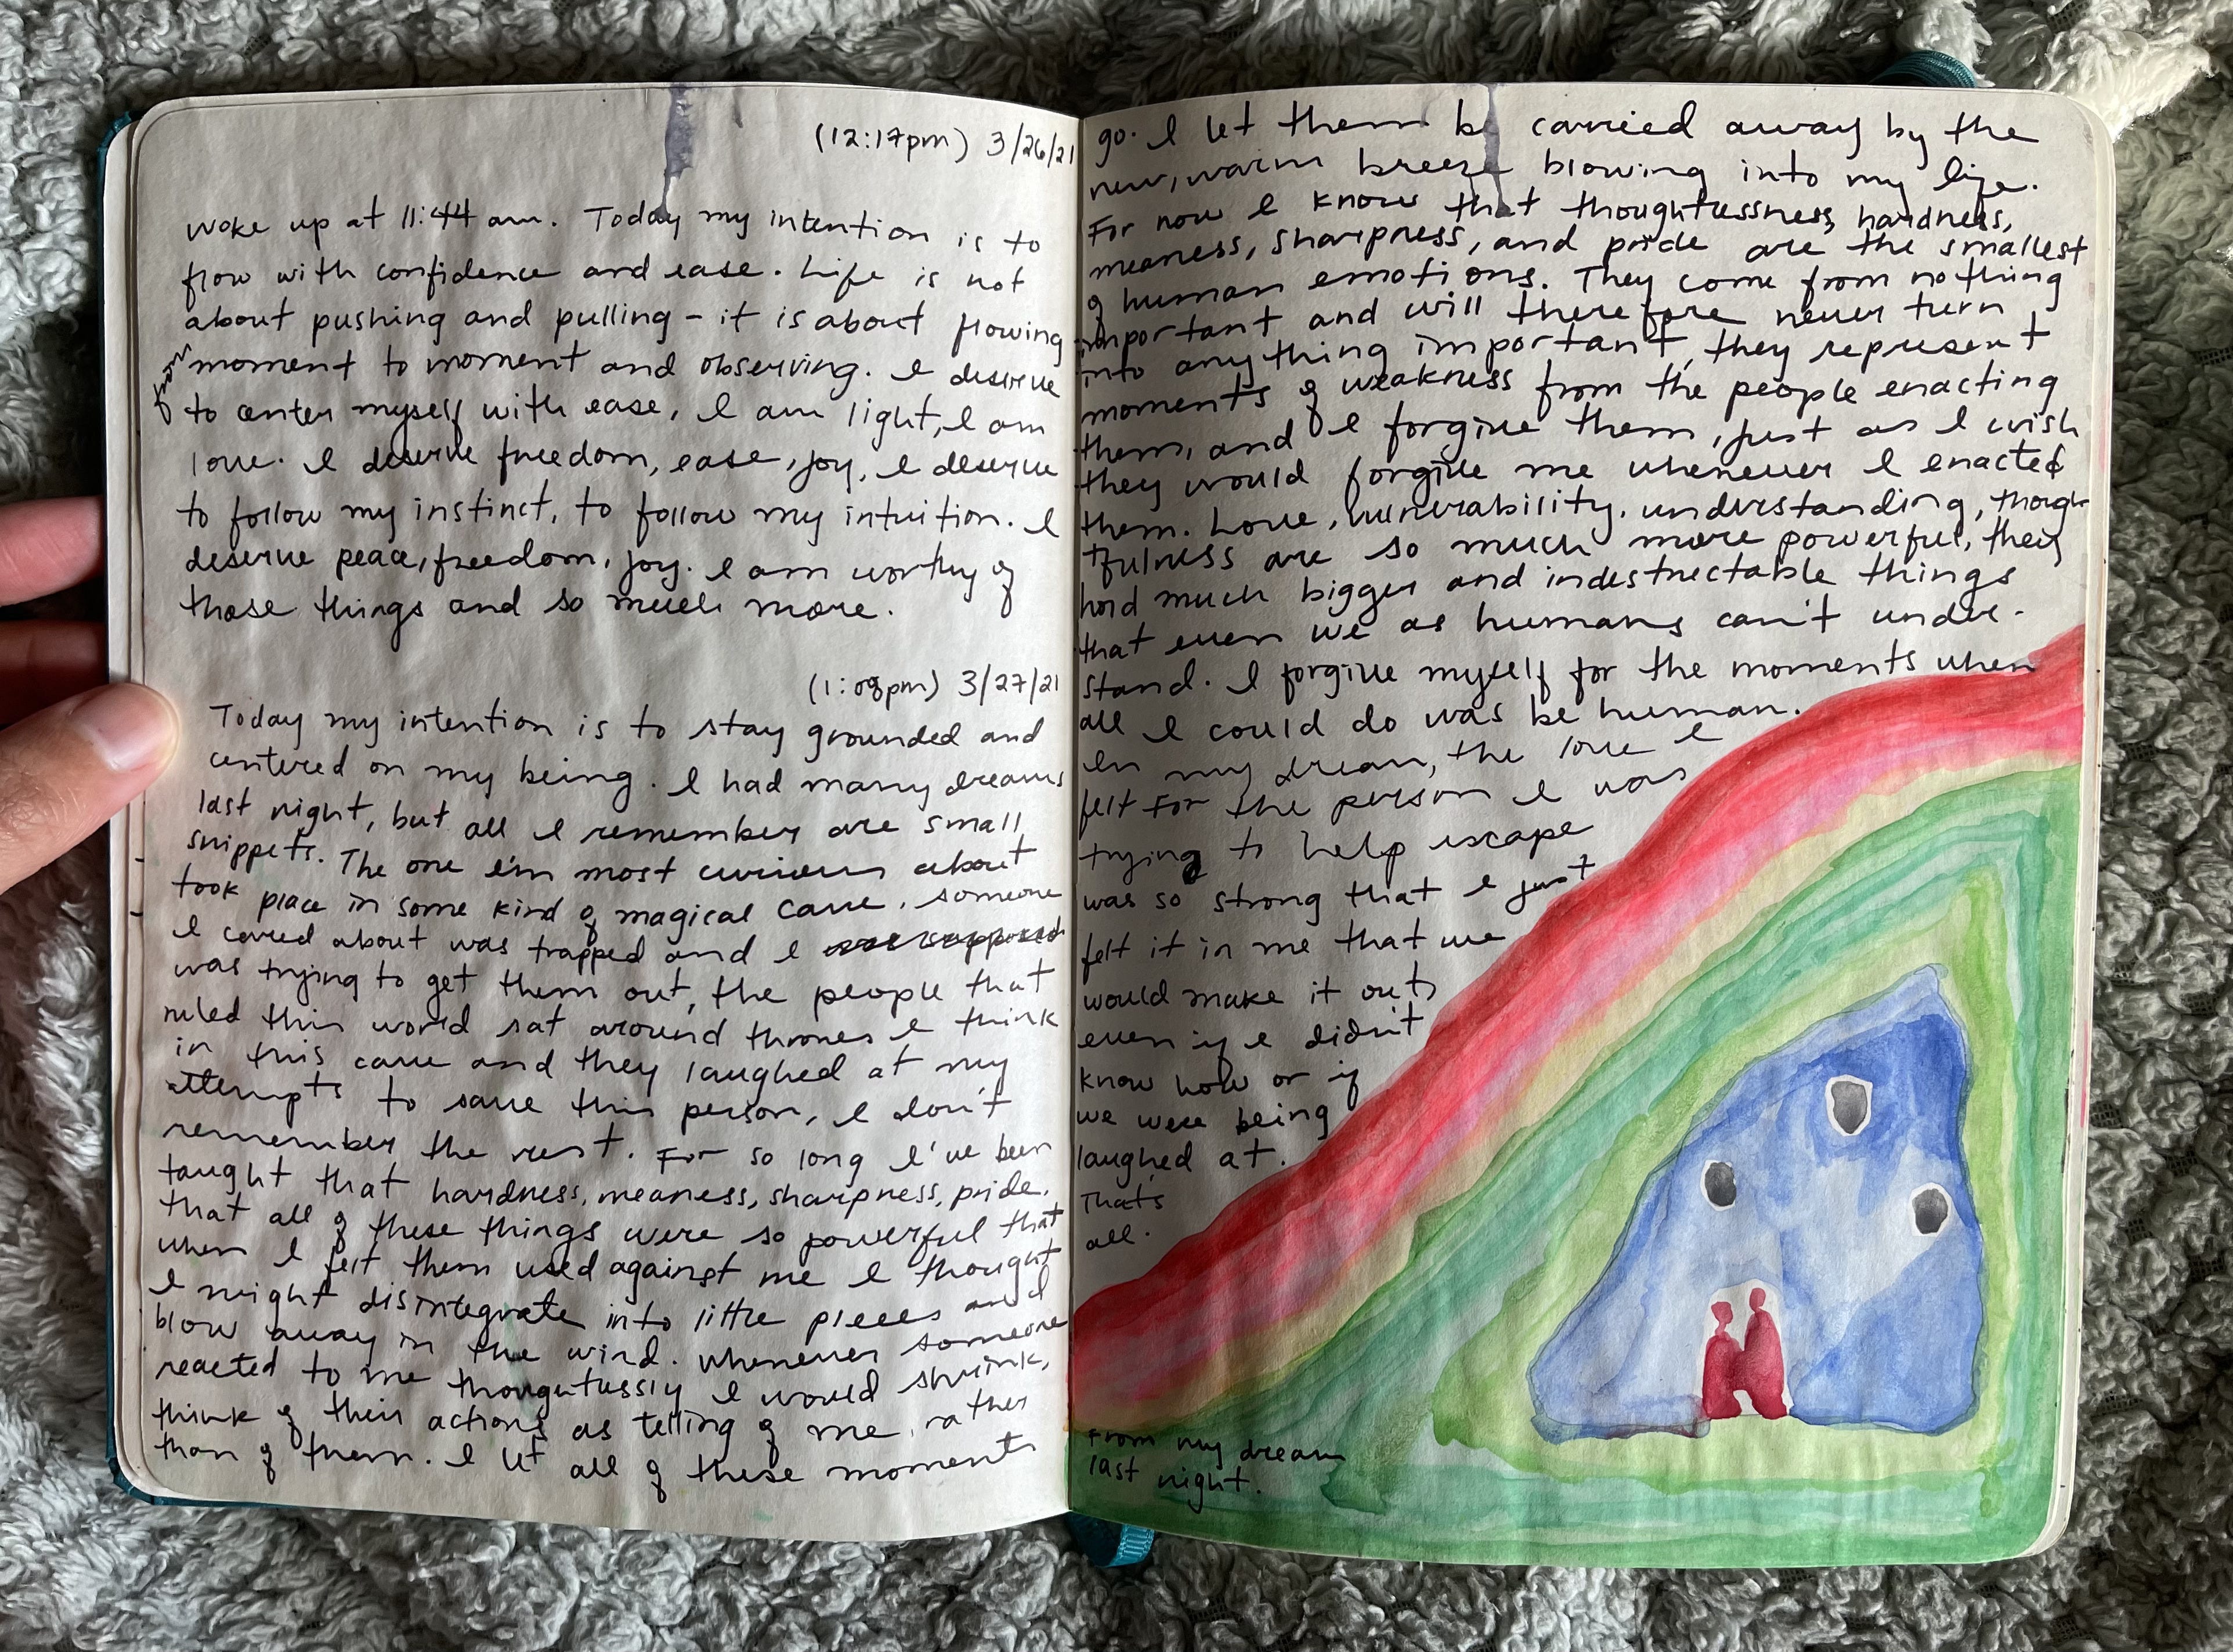 (12:17pm) 3/26/21
Woke up at 11:44 am. Today my intention is to
flow with confidence and ease. Life is not
about pushing and pulling - it is about flowing
from moment to moment and observing. I deserve
to center myself with ease, I am light, I am
love. I deserve freedom, ease, joy, I deserve
to follow my instinct, to follow my intuition. I
deserve peace, freedom, joy. I am worthy of
those things and so much more.
(1:08pm) 3/27/21
Today my intention is to stay grounded and
centered on my being. I had many dreams
last night, but all I remember are small
snippets. The one I'm most curious about
took place in some kind of magical cave, someone
I cared about was trapped and I was supposed
was trying to get them out, the people that
ruled this world sat around thrones I think
in this cave and they laughed at my
attempts to save this person, I don't
remember the rest. For so long I've been
taught that hardness, meaness, sharpness, pride,
that all of these things were so powerful that
when I felt them used against me I thought
I might disintegrate into little pieces and
blow away in the wind. Whenever someone
reacted to me thoughtlessly I would shrink,
think of their actions as telling of me, rather
than of them. I let all of these moments
go. I let them be carried away by the
new, warm breeze blowing into my life.
For now I know that thoughtlessness, hardness,
meaness, sharpness, and pride are the smallest
of human emotions. They come from nothing
important and will therefore never turn
into anything important, they represent
moments of weakness from the people enacting
them, and I forgive them, just as I wish
they would forgive me whenever I enacted
them. Love, vulnerability, understanding, though-
tfulness are so much more powerful, they
hold much bigger and indestructable things
that even we as humans can't under-
stand. I forgive myself for the moments when
all I could do was be human.
In my dream, the love I
felt for the person I was
trying to help escape
was so strong that I just
felt it in me that we
would make it out,
even if I didn't
know how or if
we were being
laughed at.
That's
all.
From my dream
last night.